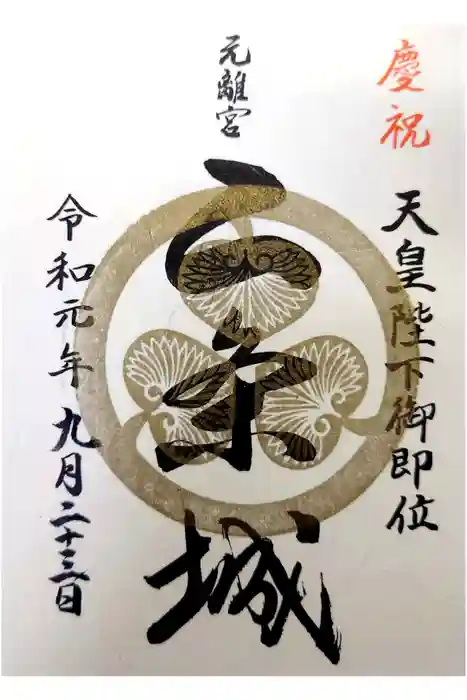 慶祝
天皇陛下御即位
元離宮
二条城
令和元年九月二十三日